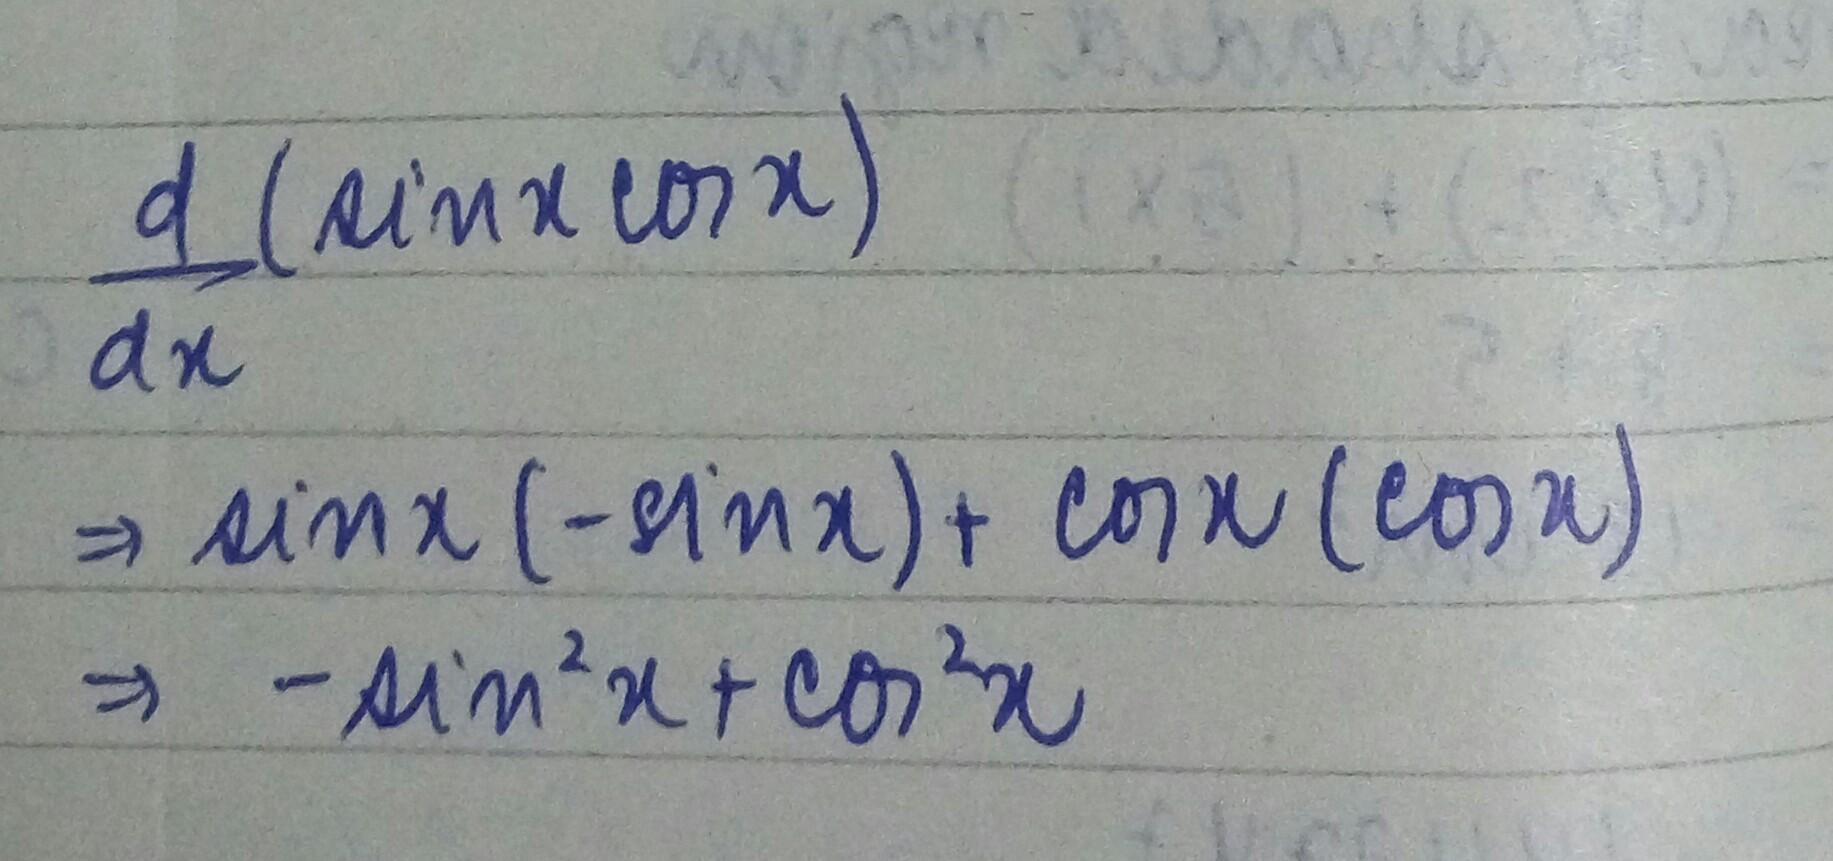 d/dx (sinx cosx)
⇒ sinx (-sinx) + cosx (cosx)
⇒ -sin²x + cos²x